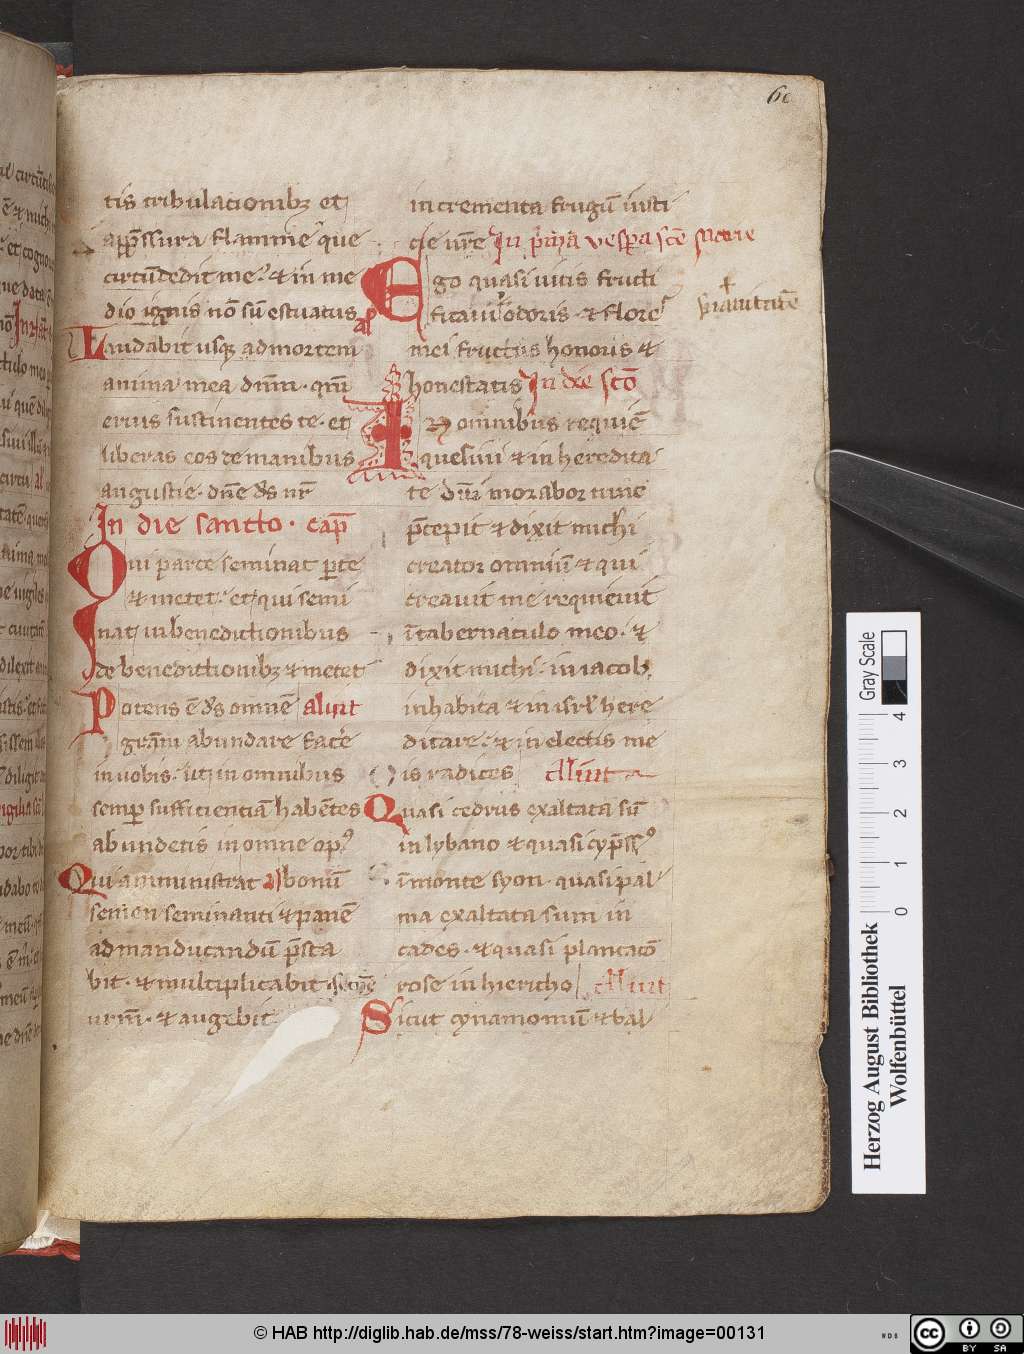 60
tis tribulationibꝫ et
app̄ssura flamme que
circūdedit me. & in me
dio ignis nō sū estuatus
Laudabit usqꝫ ad mortem al'
anima mea dn̄m. qm̄
eruis sustinentes te. et
liberas eos de manibus
angustie. dn̄e d̄s nr̄
In die sancto. cap̄
Qui parce seminat ꝑce
& metet. et qui semi
nat in benedictionibus
de benedictionibꝫ & metet
Potens ē d̄s omnē aliut
grām abundare facē
in uobis. ut in omnibus
semꝑ sufficientiā habētes
abundetis in omne opꝰ
Qui amministrat al' bonū
semen seminanti & panē
ad manducandū p̄sta
bit. & multiplicabit.
urm̄. & augebit
incrementa frugū iusti
cie ur̄e In p̄ma vesꝑa sc̄e
Ego quasi uitis fructi
ficaui odoris. & flores
suauitatē
mei fructus honoris &
honestatis In die sc̄o
In omnibus requiē
quesiui & in heredita
te dn̄i morabor tunc
p̄cepit & dixit michi
creator omniū & qui
creauit me requieuit
ī tabernaculo meo. &
dixit michi. in iacob
inhabita & in isrl' here
ditare. & in electis me
is radices Aliut
Quasi cedrus exaltata sū
in lybano & quasi cyp̄ssꝰ
ī monte syon. quasi pal
ma exaltata sum in
cades. & quasi plantatō
rose in hiericho Aliut
Sicut cynamomū & bal
Herzog August Bibliothek
Wolfenbüttel
Gray Scale
0 1 2 3 4
© HAB http://diglib.hab.de/mss/78-weiss/start.htm?image=00131
WDB
cc BY SA